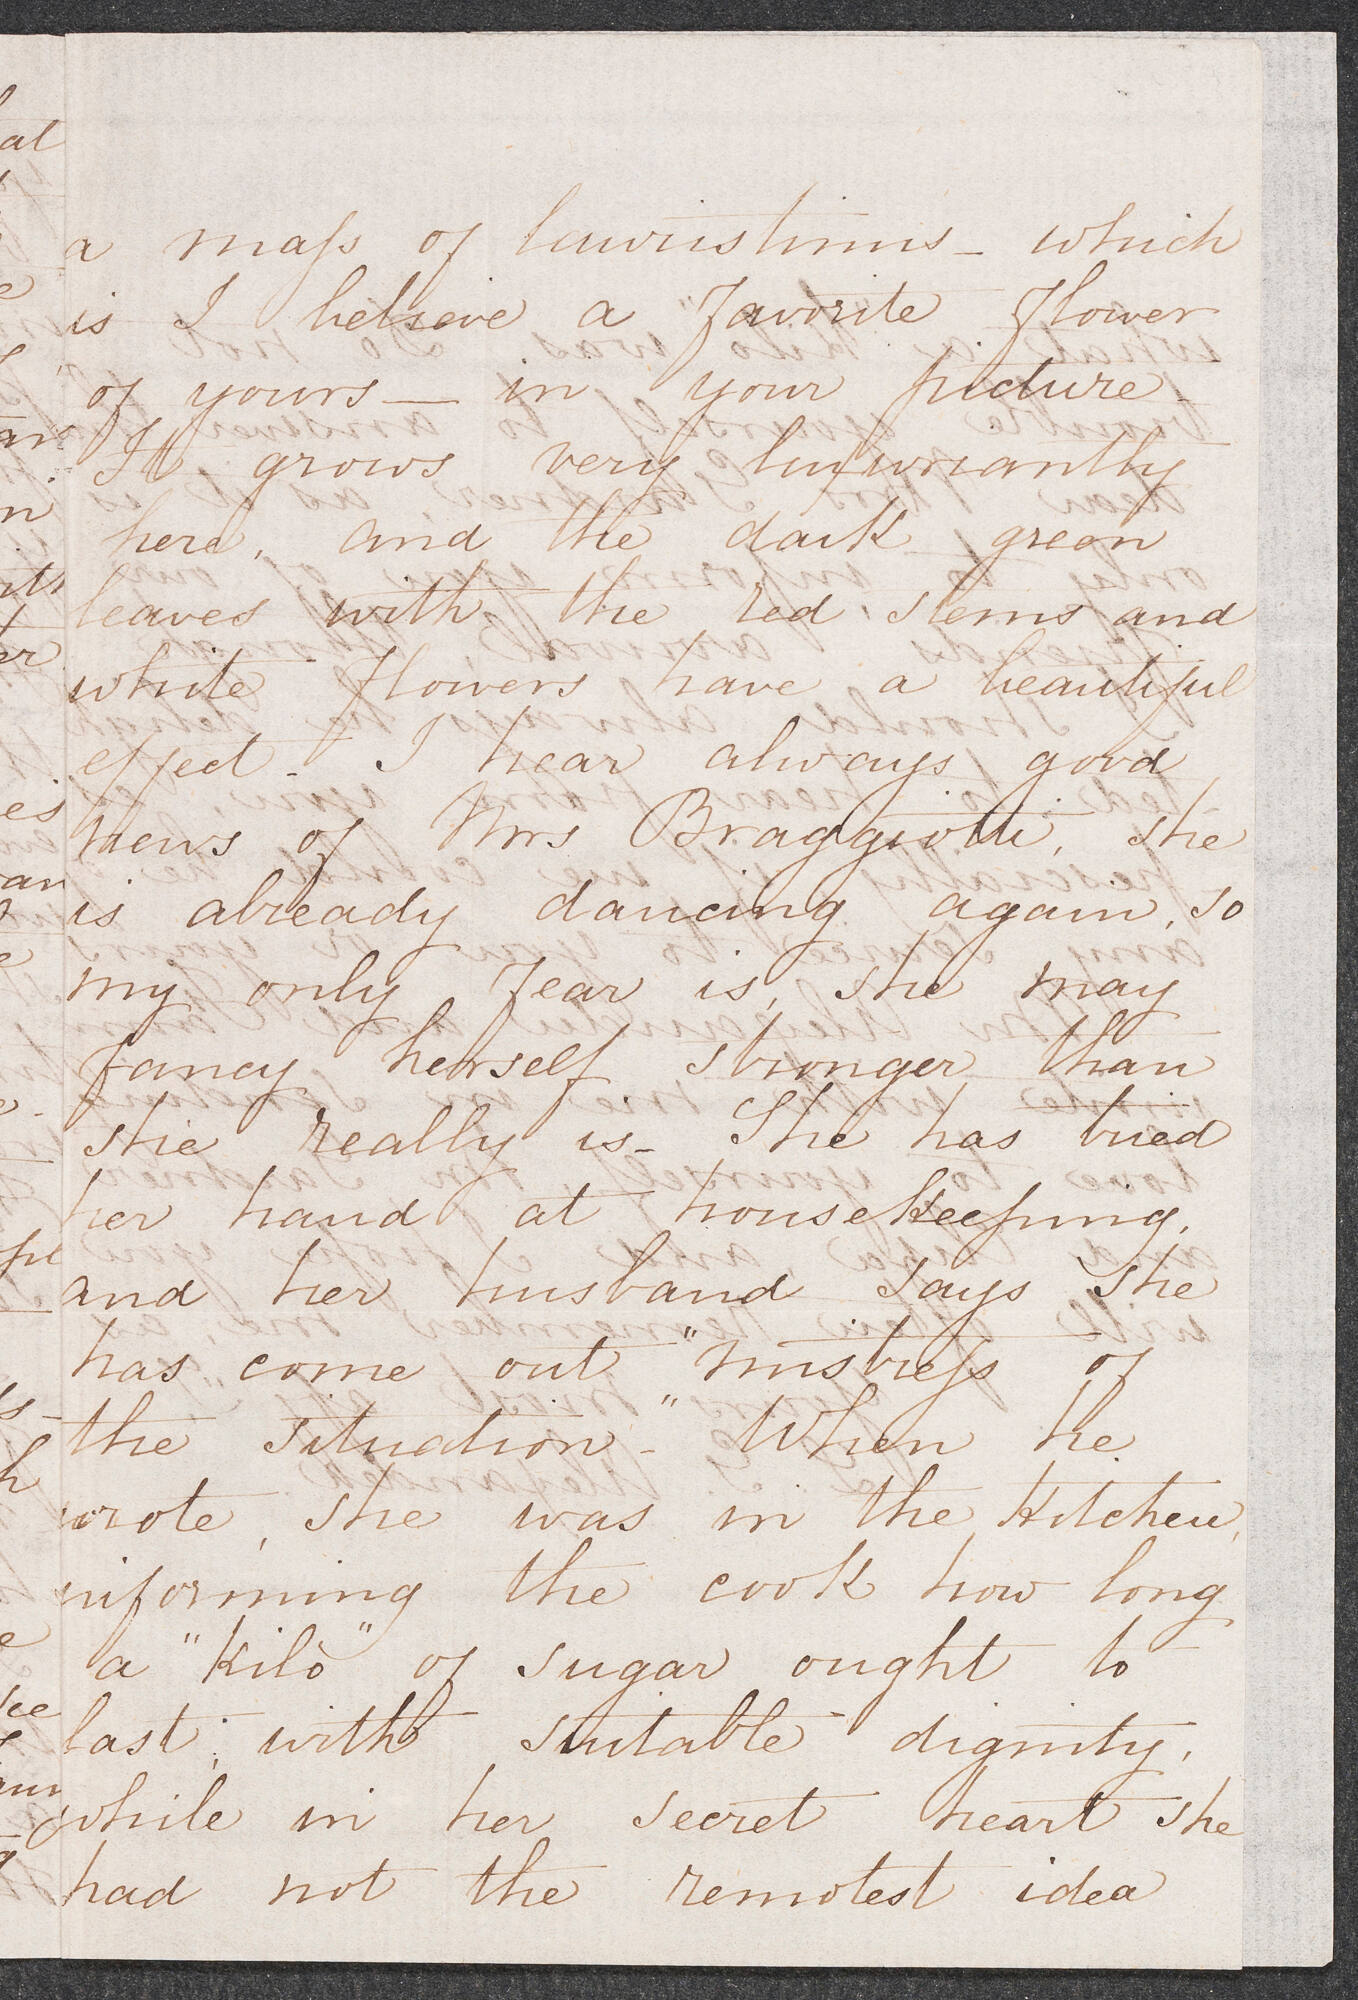 a mass of lauristinus - which
is I believe a favorite flower
of yours — in your picture -
It grows very luxuriantly
here, and the dark green
leaves with the red stems and
white flowers have a beautiful
effect - I hear always good
news of Mrs Braggiotti, she
is already dancing again, so
my only fear is, she may
fancy herself stronger than
she really is - She has tried
her hand at housekeeping,
and her husband says she
has come out "mistress of
the situation -" When he
wrote, she was in the kitchen,
informing the cook how long
a "kilò" of sugar ought to
last, with suitable dignity,
while in her secret heart she
had not the remotest idea